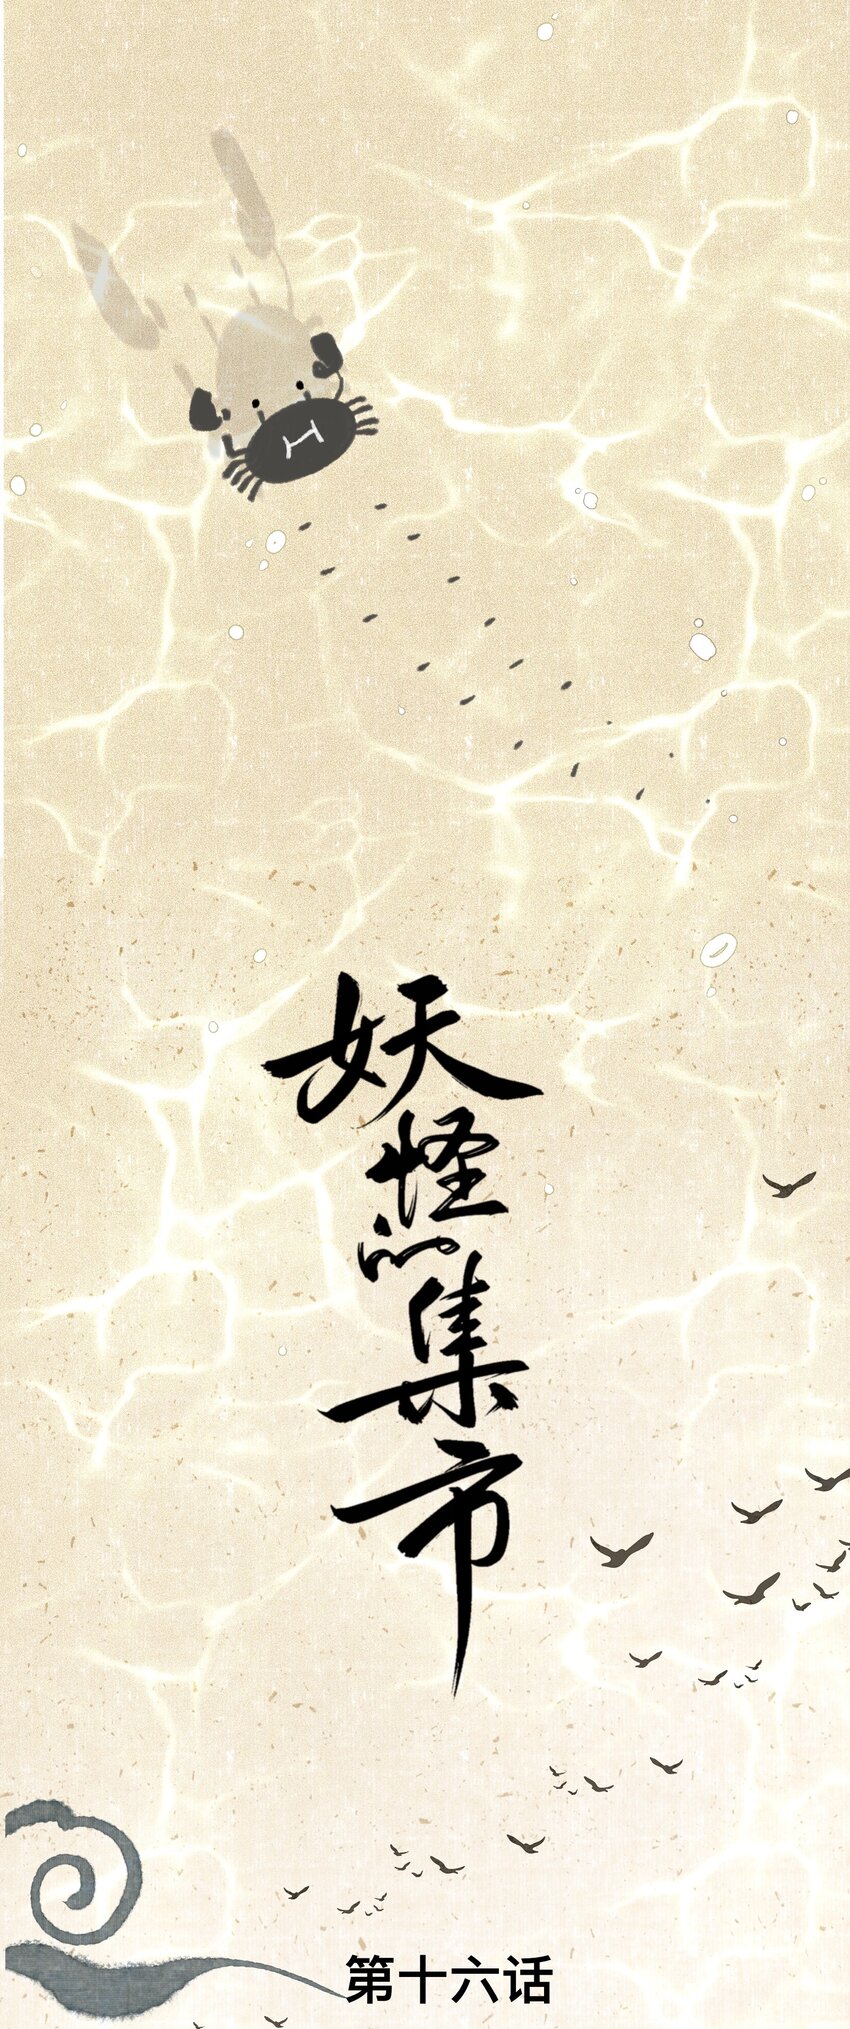 妖怪的集市
第十六话